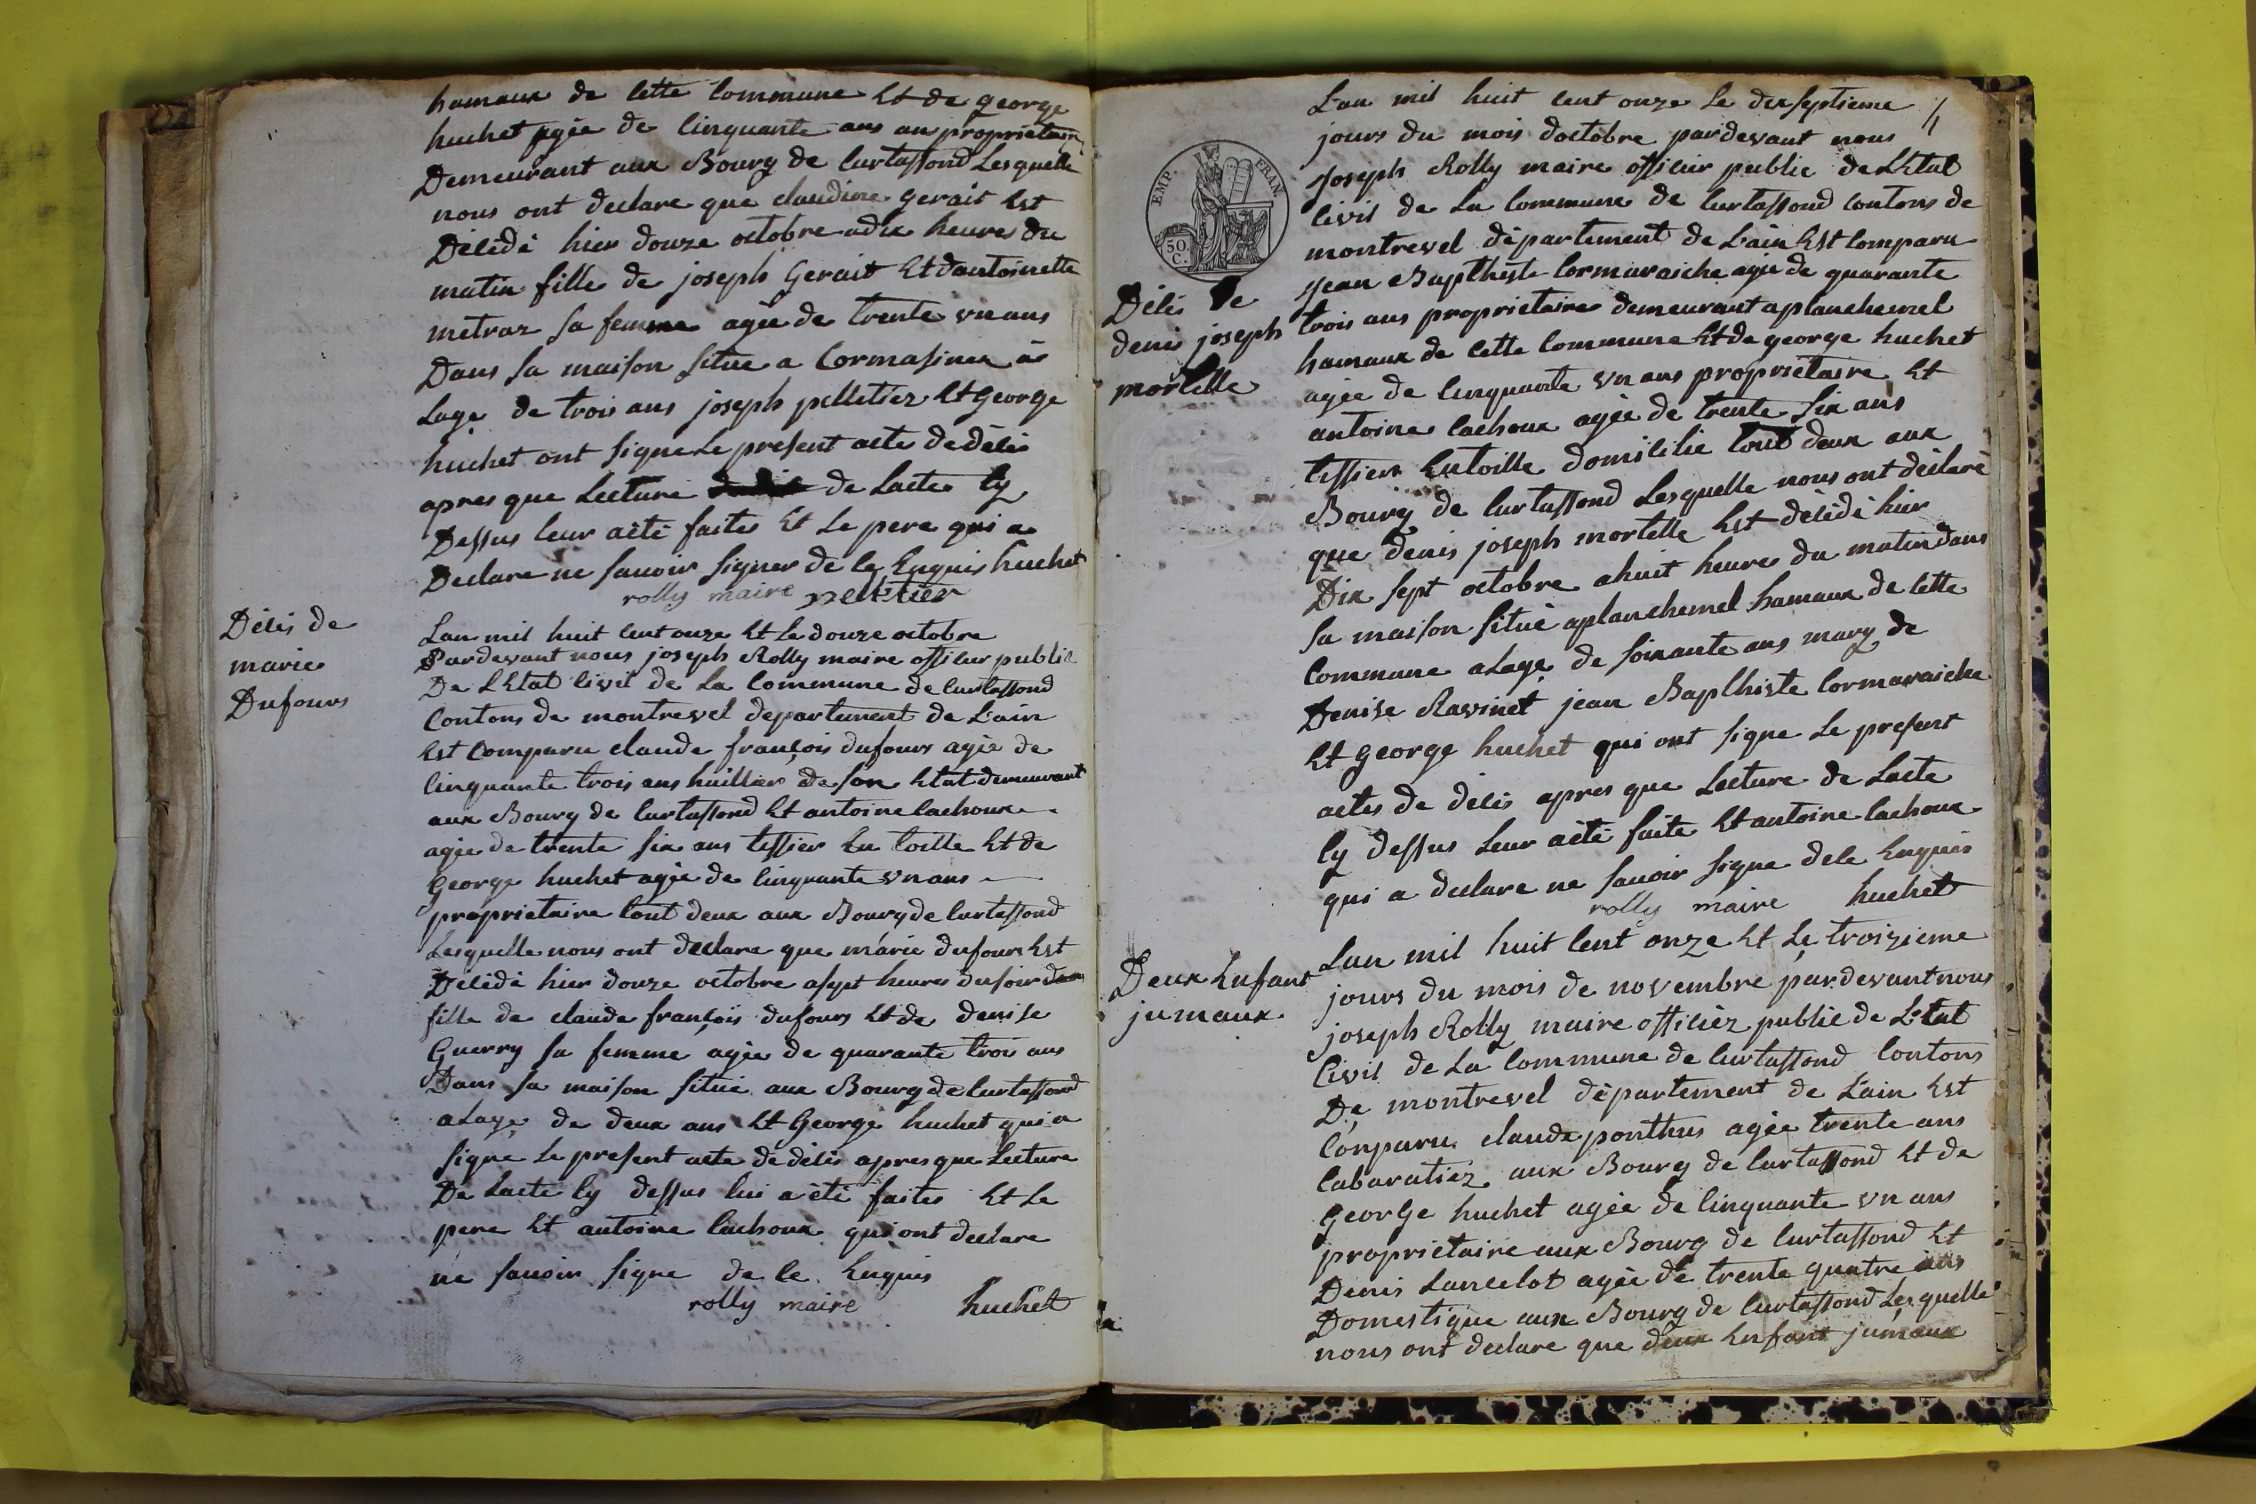 hamaux de Cette Commune Et de george
huchet agée de Cinquante ans un propriétaire
Demeurant aux Bourg de Curtassond Lesquelle
nous ont declare que claudine gerait Est
Décédé hier douze octobre a dix heures du
matin fille de joseph Gerait Et dantoinette
metraz sa femme agée de trente un ans
Dans sa maison situe a Cormasinex a
Lage de trois ans joseph pelletier Et George
huchet ont signe Le present acte de décés
apres que Lecture de Lacte Cy
Dessus leur aété faites Et Le pere qui a
Declare ne sauoir signer de Ce Enquis huchet
rolly maire pelltier
Décés de
marie
Dufours
Lan mil huit Cent onze Et Le douze octobre
Pardevant nous joseph Rolly maire officier public
De LEtat Civil de La Commune de Curtassond
Contons de montrevel departement de L'ain
Est Comparu claude françois dufours agée de
Cinquante trois ans huillier de son Etat demeurant
aux Bourg de Curtassond Et antoine Cachoux
agée de trente six ans tissier En toille Et de
George huchet agée de Cinquante un ans
propriétaire tout deux aux Bourg de Curtassond
Lesquelle nous ont declare que marie dufours Est
Décédé hier douze octobre asept heures du soir
fille de claude françois dufours Et de denise
Guerry sa femme agée de quarante trois ans
Dans sa maison situé aux Bourg de Curtassond
a Lage de deux ans Et George huchet qui a
signe Le present acte de décés apres que Lecture
De Lacte Cy dessus lui a été faites Et Le
pere Et antoine Cachoux qui ont declare
ne sauoir signe de Ce Enquis
rolly maire huchet
4
EMP. FRAN.
50 C.
Décés de
denis joseph
mortelle
Lan mil huit Cent onze Le dixseptieme
jours du mois doctobre pardevant nous
joseph Rolly maire officier public de LEtat
Civil de La Commune de Curtassond Contons de
montrevel département de L'ain Est Comparu
jean Bapthiste Cormaraiche agée de quarante
trois ans proprietaire demeurant a planchemel
hamaux de Cette Commune Et de george huchet
agée de Cinquante un ans propriétaire Et
antoine Cachoux agée de trente six ans
tissier Entoille domicilie tout deux aux
Bourg de Curtassond Lesquelle nous ont déclaré
que denis joseph mortelle Est décédé hier
Dix sept octobre ahuit heures du matin dans
sa maison situé aplanchemel hamaux de Cette
Commune a Lage de soixante ans mary de
Denise Ravinet jean Bapthiste Cormaraiche
Et George huchet qui ont signe Le present
actes de décés apres que Lecture de Lacte
Cy dessus Leur aété faite Et antoine Cachoux
qui a declare ne sauoir signe de Ce Enquis
rolly maire huchet
Deux Enfant
jumaux
Lan mil huit Cent onze Et Le troizieme
jours du mois de novembre pardevant nous
joseph Rolly maire officièr public de L'Etat
Civil de La Commune de Curtassond Contons
De montrevel département de L'ain Est
Conparu claude ponthus agée trente ans
Cabaratiez aux Bourg de Curtassond Et de
George huchet agée de Cinquante un ans
propriétaire aux Bourg de Curtassond Et
Denis Lancelot agée de trente quatre ans
Domestique aux Bourg de Curtassond Lesquelle
nous ont declare que deux Enfant jumaux